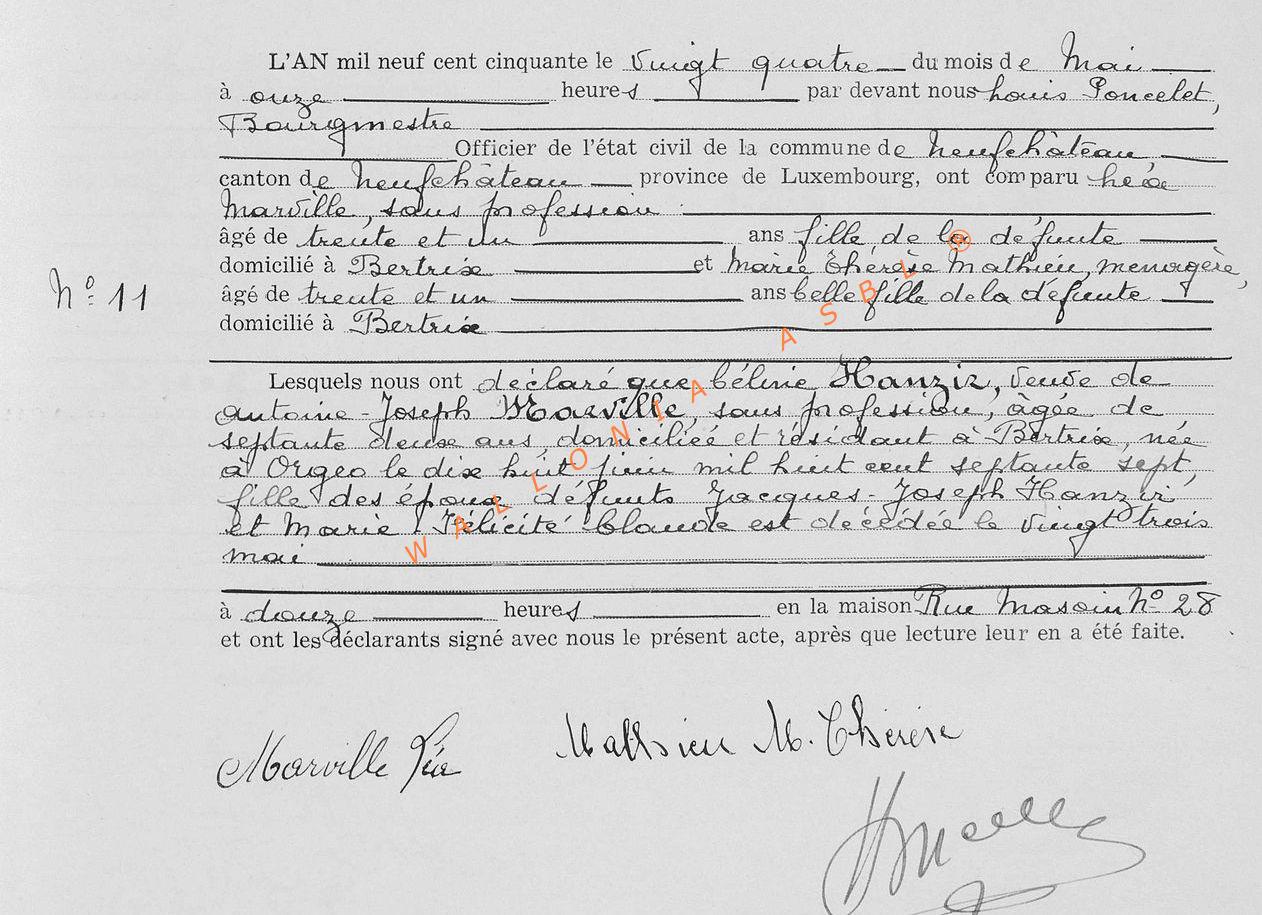 L'AN mil neuf cent cinquante le vingt quatre du mois de Mai
à onze heures par devant nous Louis Poncelet,
Bourgmestre
Officier de l'état civil de la commune de Neufchâteau,
canton de Neufchâteau province de Luxembourg, ont comparu Léa
Marville, sans profession
âgé de trente et un ans fille de la défunte
domicilié à Bertrix et Marie Thérèse Mathieu, menagère,
N° 11
âgé de trente et un ans belle fille de la défunte
domicilié à Bertrix
Lesquels nous ont déclaré que Céline Hanzir, veuve de
Antoine-Joseph Marville, sans profession, âgée de
septante deux ans, domiciliée et résidant à Bertrix, née
à Orgeo le dix huit juin mil huit cent septante sept,
fille des époux défunts Jacques-Joseph Hanzir
et Marie Félicité Claude est décédée le vingt trois
mai
à douze heures en la maison Rue Masoin N° 28
et ont les déclarants signé avec nous le présent acte, après que lecture leur en a été faite.
WALLONIA ASBL ©
Marville Léa
Mathieu M. Thérèse